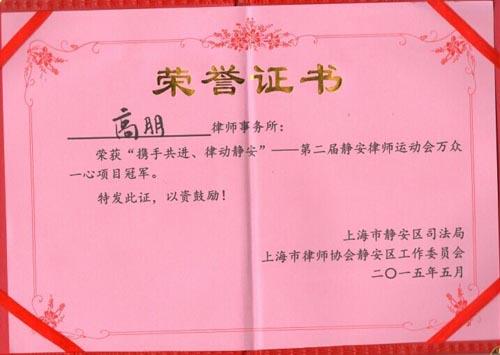 荣誉证书
高朋 律师事务所：
荣获“携手共进、律动静安”——第二届静安律师运动会万众
一心项目冠军。
特发此证，以资鼓励！
上海市静安区司法局
上海市律师协会静安区工作委员会
二〇一五年五月